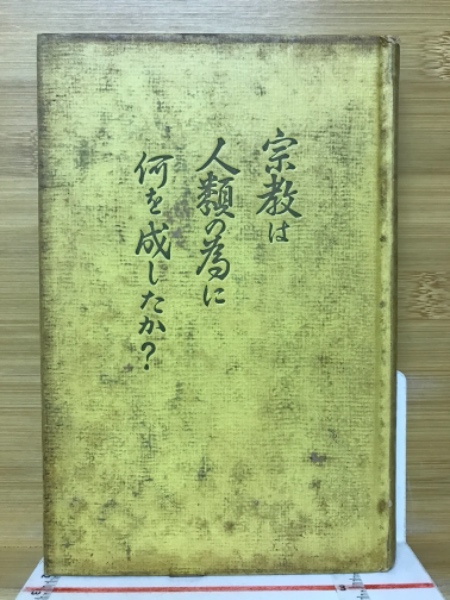 宗教は
人類の為に
何を成したか?